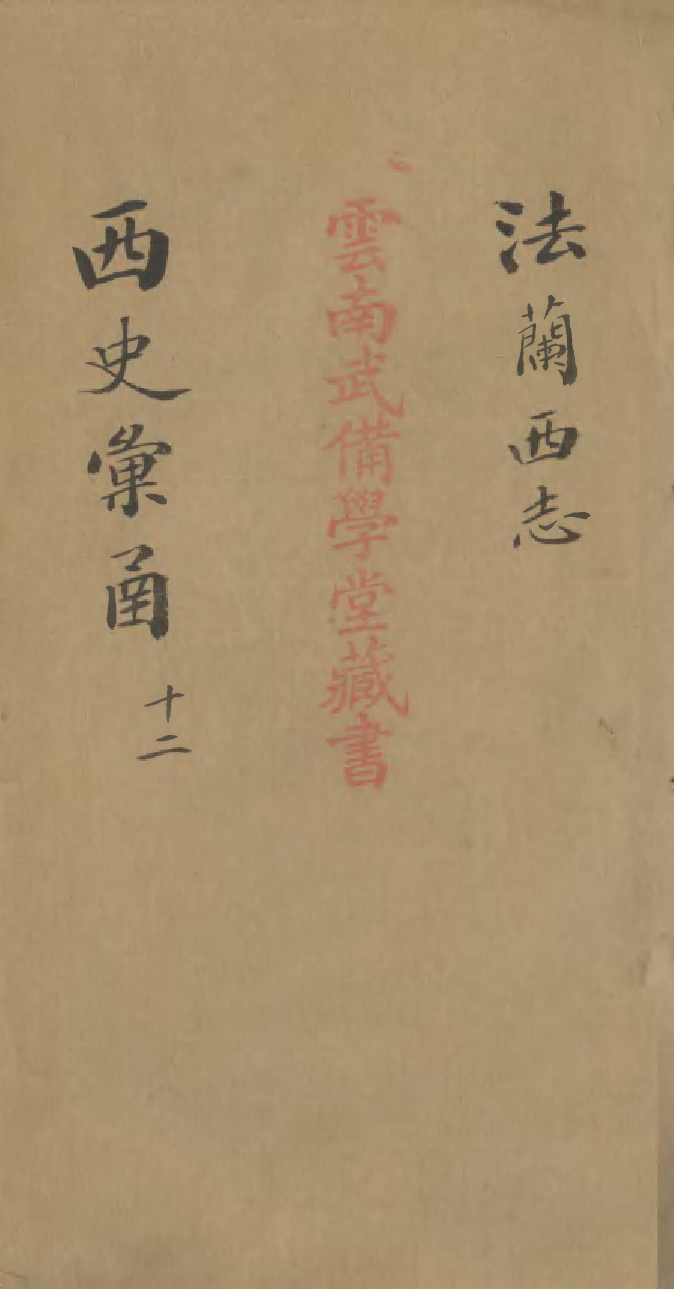 法蘭西志
雲南武備學堂藏書
西史彙圅
十二